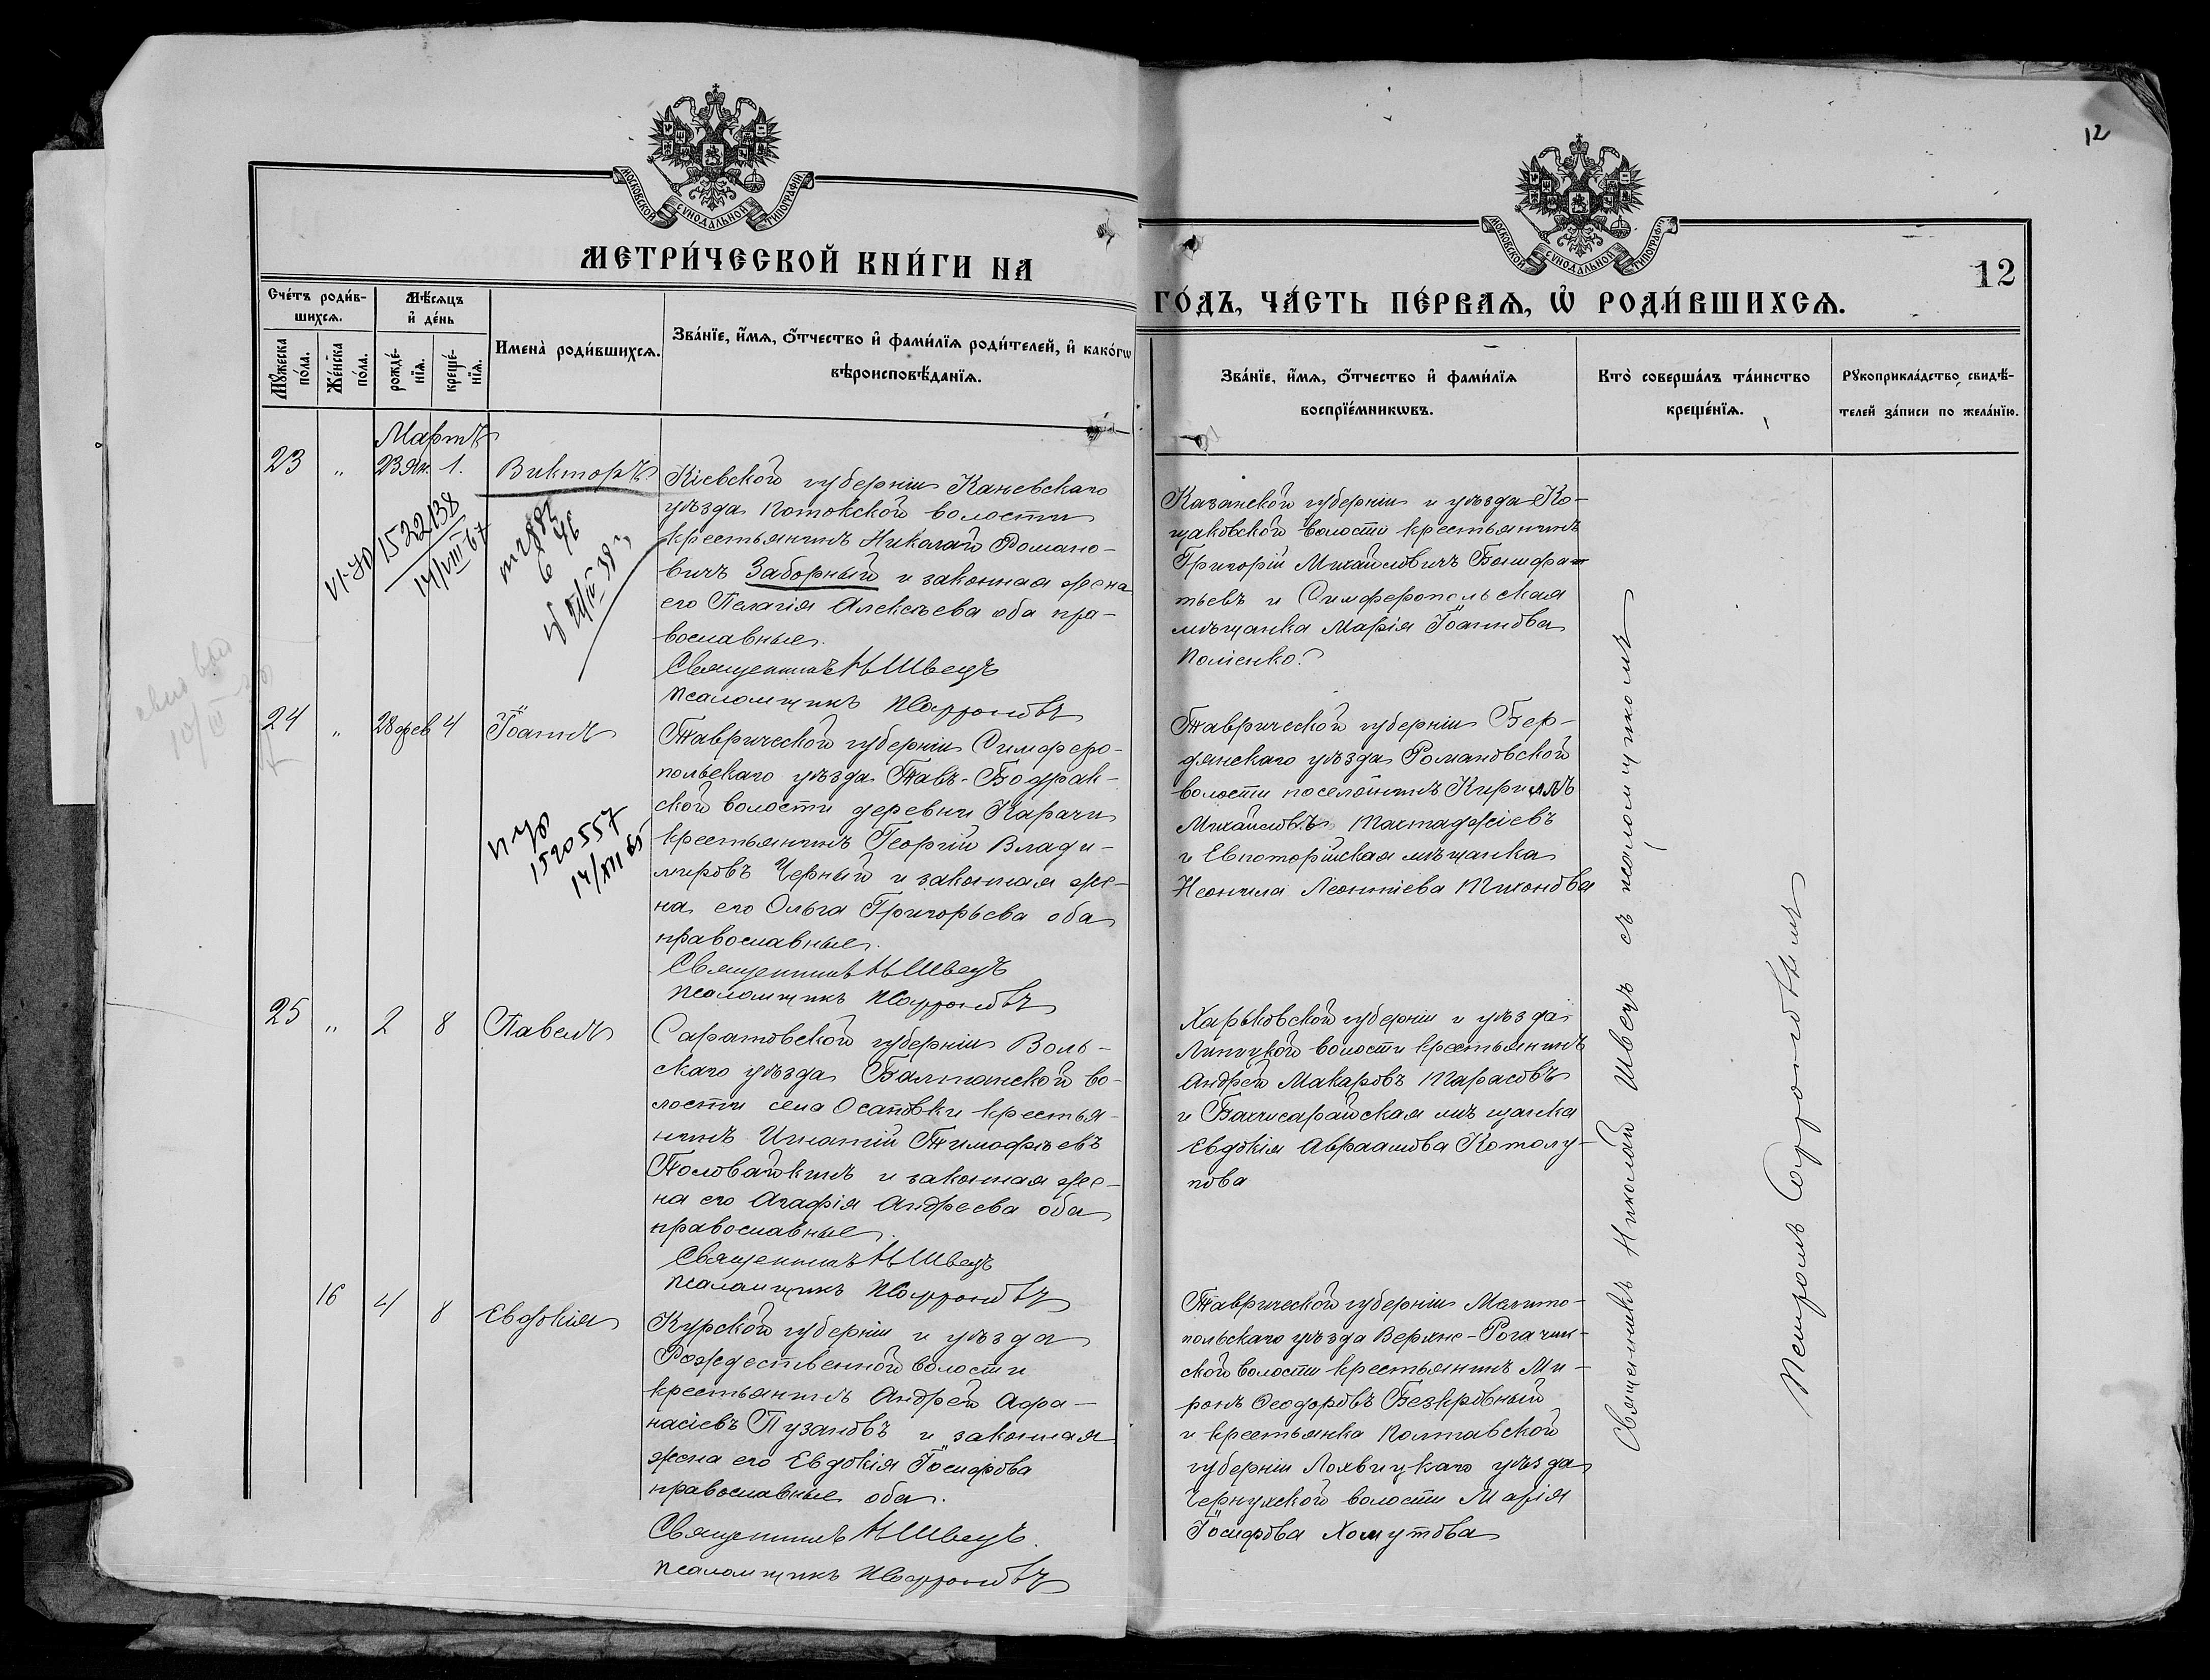 12
МОСКОВСКОЙ СѴНОДАЛЬНОЙ ТИПОГРАФІИ
МОСКОВСКОЙ СѴНОДАЛЬНОЙ ТИПОГРАФІИ
МЕТРИ́ЧЕСКОЙ КНИ́ГИ НА
12
ГО́ДЪ, ЧА́СТЬ ПЕ́РВАѦ, Ѡ҆ РОДИ́ВШИХСѦ.
Сче́тъ роди́в-
шихсѧ.
Мѣ́сѧцъ
и҆ де́нь
Мꙋ́жеска по́ла.
Же́нска по́ла.
рожде́-
нїѧ.
креще́-
нїѧ.
Имена̀ роди́вшихсѧ.
Зва́нїе, и҆́мѧ, ѻ҆́тчество и҆ фами́лїѧ роди́телей, и҆ како́гѡ
вѣроисповѣ́данїѧ.
Зва́нїе, и҆́мѧ, ѻ҆́тчество и҆ фами́лїѧ
воспрїе́мникѡвъ.
Кто̀ соверша́лъ та́инство
креще́нїѧ.
Рꙋкоприкла́дство свидѣ́-
телей за́писи по жела́нїю.
Мартъ
23 " 23 Ян. 1. Викторъ
Кіевской губерніи Каневскаго
уѣзда Потокской волости
крестьянинъ Николай Романо-
вичъ Заборный и законная жена
его Пелагія Алексѣева оба пра-
вославные.
Священникъ Н Швецъ
Псаломщикъ П Софроновъ
VI-ЯЮ 1522138
14/VIII 67
Казанской губерніи и уѣзда Ко-
щаковской волости крестьянинъ
Григорій Михайловичъ Бонифа-
тьевъ и Симферопольская
мѣщанка Марія Іоаннова
24 " 28 фев 4 Іоаннъ
Таврической губерніи Симферо-
польскаго уѣзда Тавъ-Бодрак-
ской волости деревни Карачи
крестьянинъ Георгій Влади-
міровъ Черный и законная же-
на его Ольга Григорьева оба
православные.
Священникъ Н Швецъ
Псаломщикъ П Софроновъ
1520557
Таврической губерніи Бер-
дянскаго уѣзда Романовской
волости поселянинъ Кириллъ
Михайловъ Тахтаджіевъ
и Евпаторійская мѣщанка
Неонила Леонтіева Тихонова
25 " 2 8 Павелъ
Саратовской губерніи Воль-
скаго уѣзда Балтайской во-
лости села Осановки крестья-
нинъ Игнатій Тимофѣевъ
Половайкинъ и законная же-
на его Агафія Андреева оба
православные.
Священникъ Н Швецъ
Псаломщикъ П Софроновъ
Харьковской губерніи и уѣзда
Липецкой волости крестьянинъ
Андрей Макаровъ Тарасовъ
и Бахчисарайская мѣщанка
Евдокія Авраамова Котолу-
пова
16 4 8 Евдокія
Курской губерніи и уѣзда
Рождественной волости
крестьянинъ Андрей Афа-
насіевъ Пузановъ и законная
жена его Евдокія Іосифова
православные оба.
Священникъ Н Швецъ.
Псаломщикъ П Софроновъ
Таврической губерніи Мелито-
польскаго уѣзда Верхне-Рогачик-
ской волости крестьянинъ Ми-
ронъ Ѳеодоровъ Безкровный
и крестьянка Полтавской
губерніи Лохвицкаго уѣзда
Чернухской волости Марія
Іосифова Хомутова
Священникъ Николай Швецъ съ псаломщикомъ
Петромъ Софроновымъ